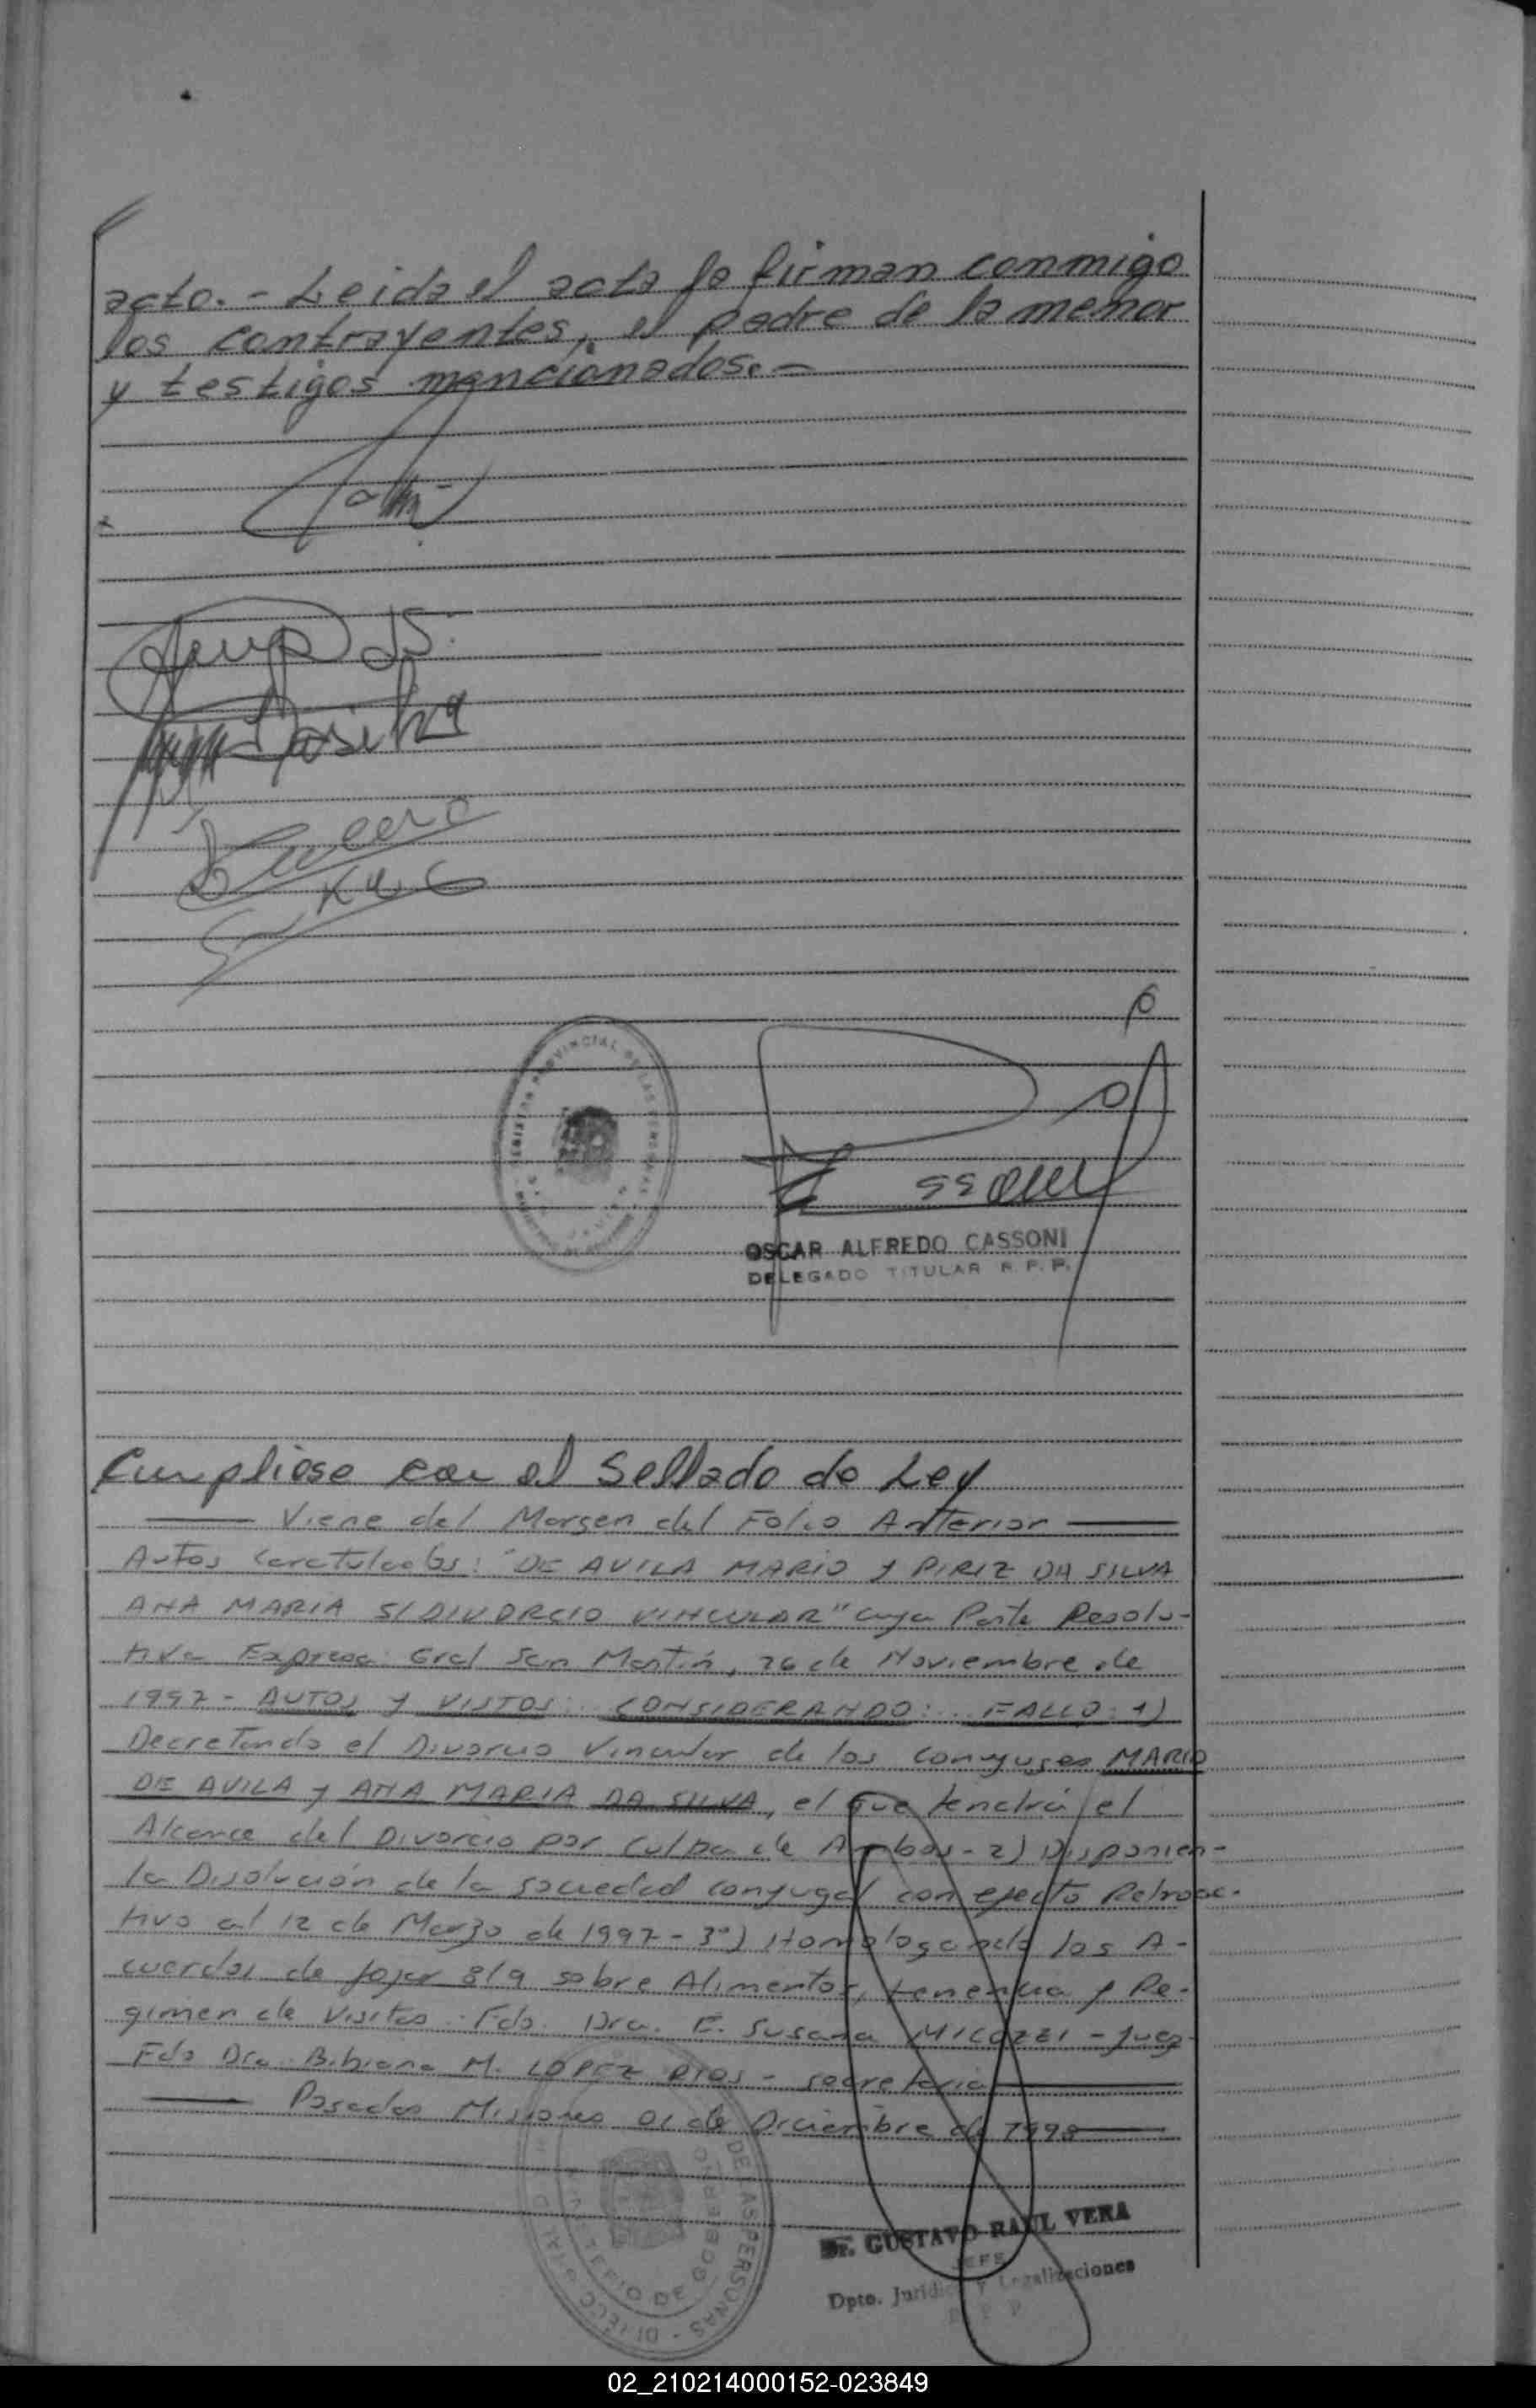 acto. - Leida el acta la firman conmigo
los contrayentes, el padre de la menor
y testigos mencionados. -
OSCAR ALFREDO CASSONI
DELEGADO TITULAR R. P. P.
Cumpliose con el Sellado de Ley
Viene del Margen del Folio Anterior
Autos Caratulados: "DE AVILA MARIO y PIRIZ DA SILVA
ANA MARIA S/DIVORCIO VINCULAR" cuya Parte Resolu-
tiva Expresa: Gral San Martín, 26 de Noviembre de
1997 - AUTOS y VISTOS: CONSIDERANDO: FALLO: 1)
Decretando el Divorcio Vincular de los conyuges MARIO
DE AVILA y ANA MARIA DA SILVA, el que tendrá el
Alcance del Divorcio por culpa de Ambos - 2) Disponien-
la Disolución de la sociedad conyugal con efecto Retroac-
tivo al 12 de Marzo de 1997 - 3º) Homologando los A-
cuerdos de fojas 8/9 sobre Alimentos, tenencia y Re-
gimen de Visitas. Fdo. Dra. E. Susana MICOZZI - Juez -
Fdo Dra. Bibiana M. LOPEZ RIOS - secretaria
Posadas Misiones 01 de Diciembre de 1998
DE LAS PERSONAS - DIRECC
MINISTERIO DE GOBIERNO
Dr. GUSTAVO RAUL VERA
JEFE
Dpto. Juridico y Legalizaciones
02_210214000152-023849